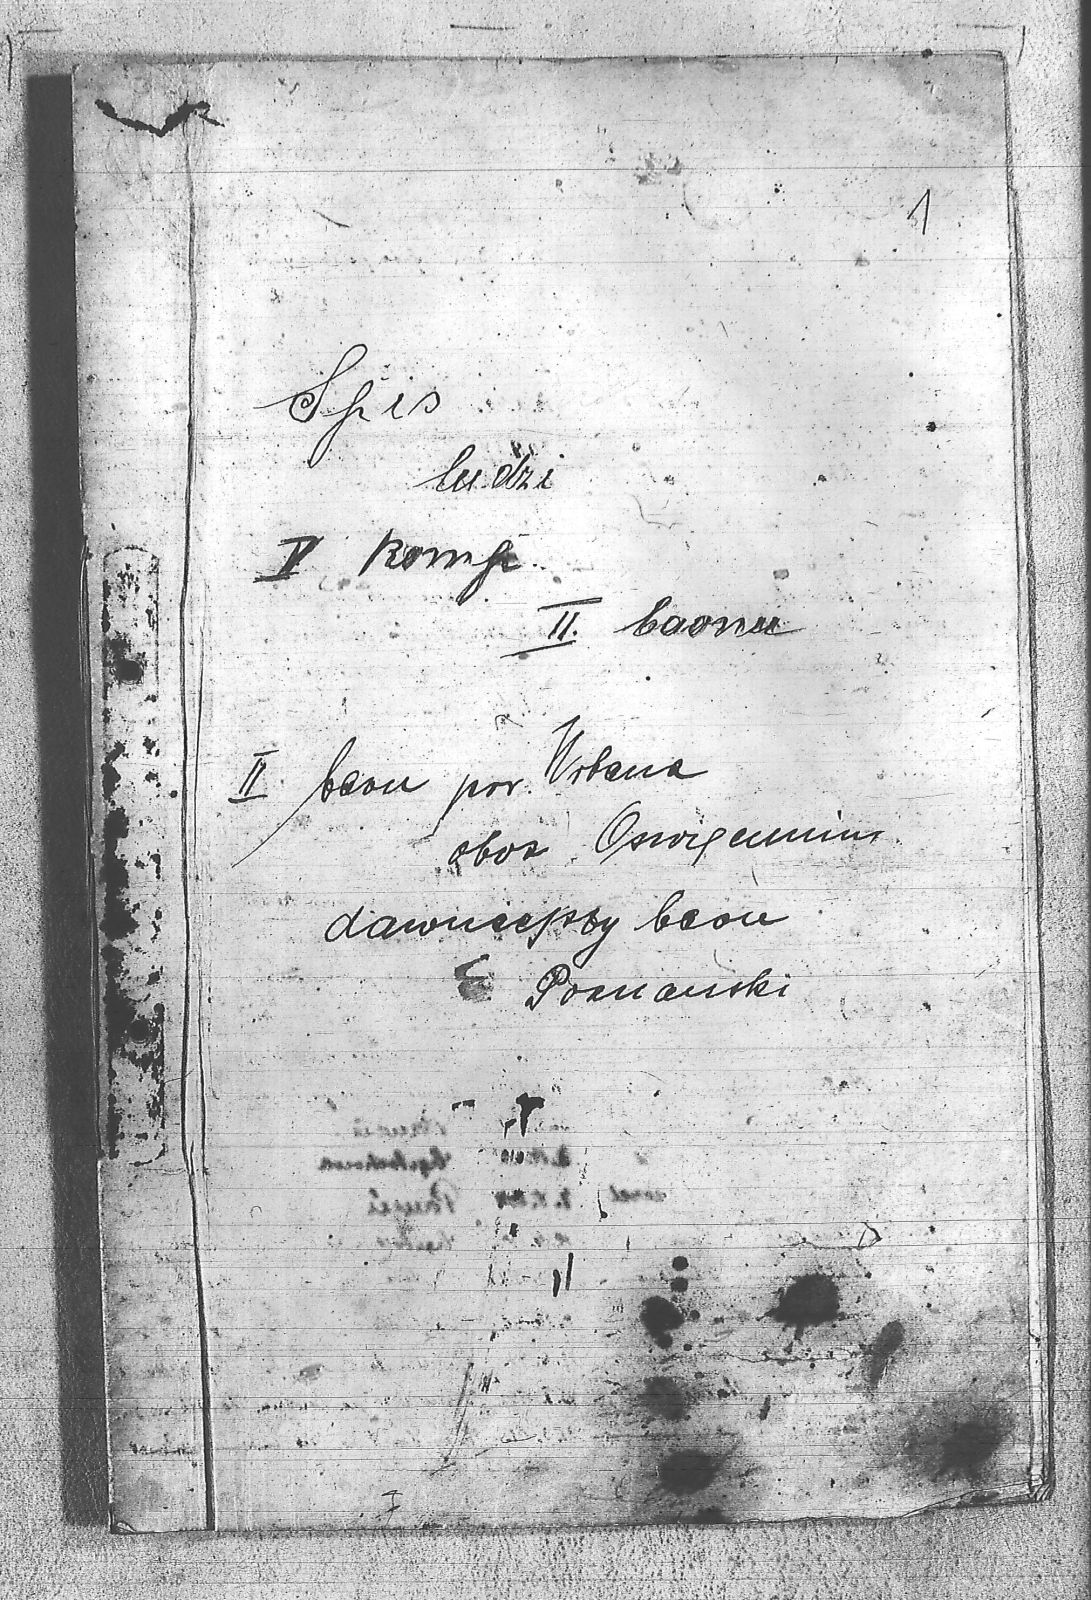 1
Spis
ludzi
V komp.
II. baonu
II baon por. Urbana
oboz Oswięcimiu
dawniejszy baon
Poznański